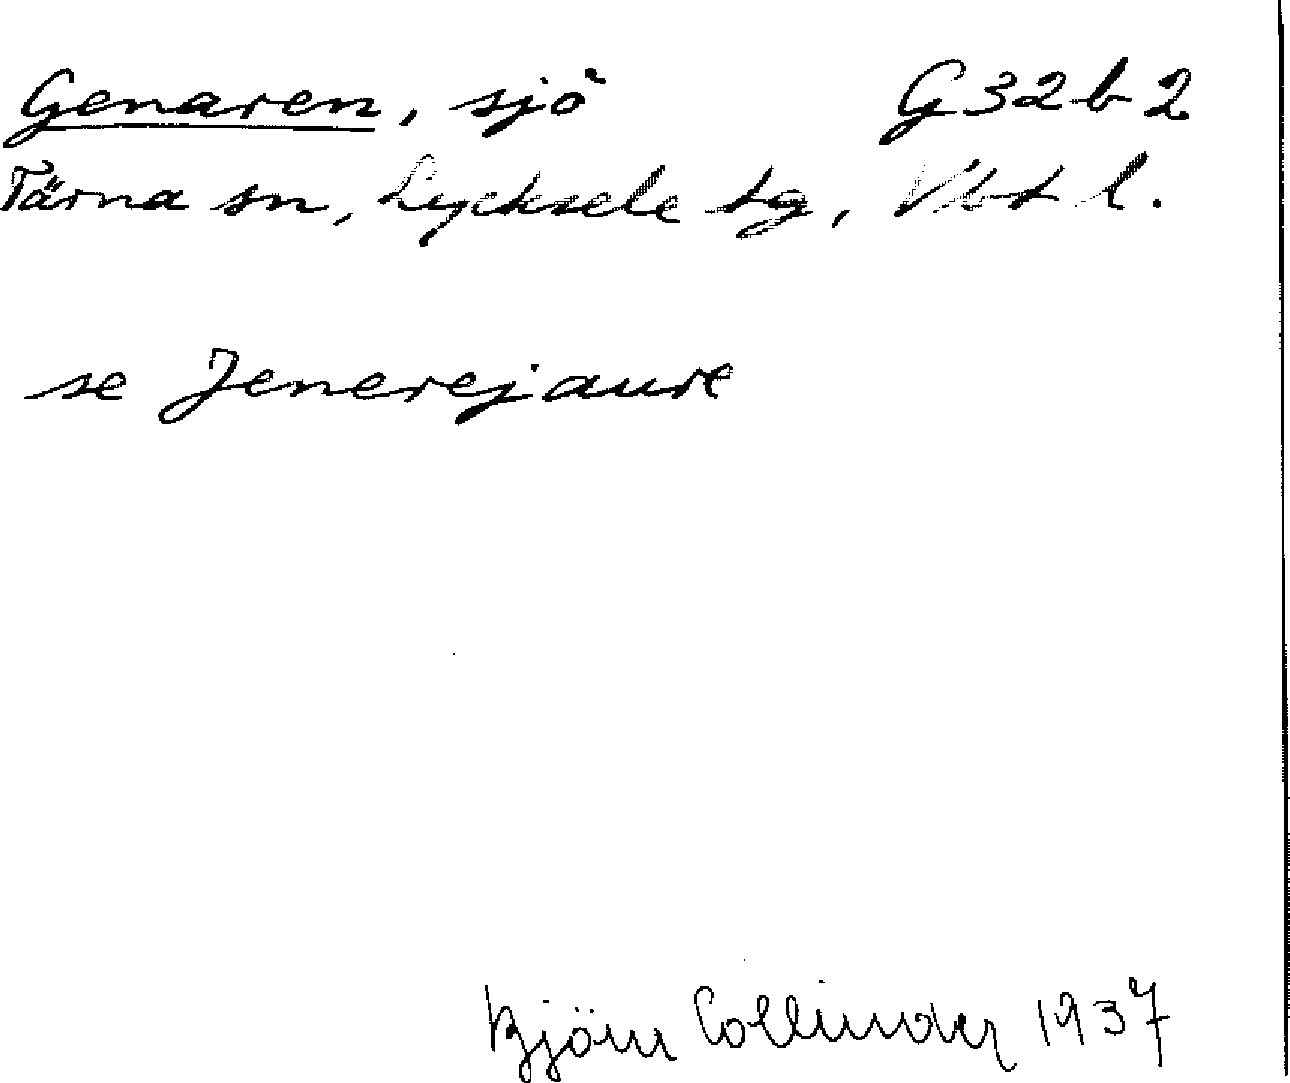 Genaren, sjö G32b2
Tärna sn, Lycksele tg, Vbt l.
se Jenerejaure
Björn Collinder 1937